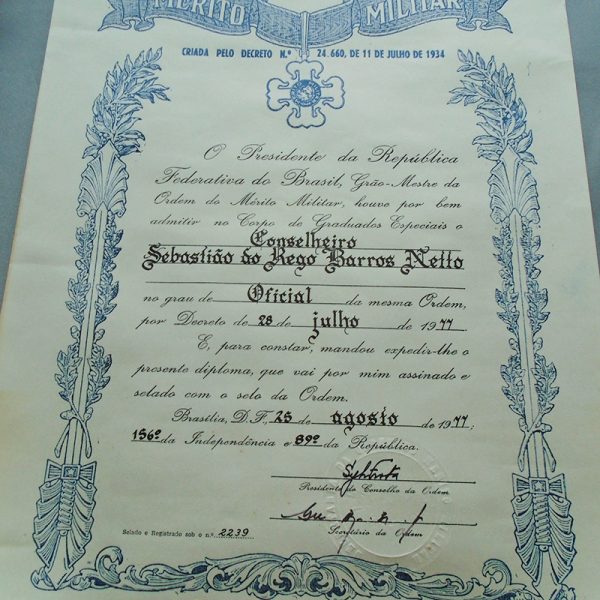 MÉRITO MILITAR
CRIADA PELO DECRETO N.º 24.660, DE 11 DE JULHO DE 1934
O Presidente da República
Federativa do Brasil, Grão-Mestre da
Ordem do Mérito Militar, houve por bem
admitir no Corpo de Graduados Especiais o
Conselheiro
Sebastião do Rego Barros Netto
no grau de Oficial da mesma Ordem,
por Decreto de 28 de julho de 1977
E, para constar, mandou expedir-lhe o
presente diploma, que vai por mim assinado e
selado com o selo da Ordem.
Brasília, D.F, 25 de agosto de 1977;
156º da Independência e 89º da República.
Presidente do Conselho da Ordem
Selado e Registrado sob o n.º 2239
Secretário da Ordem